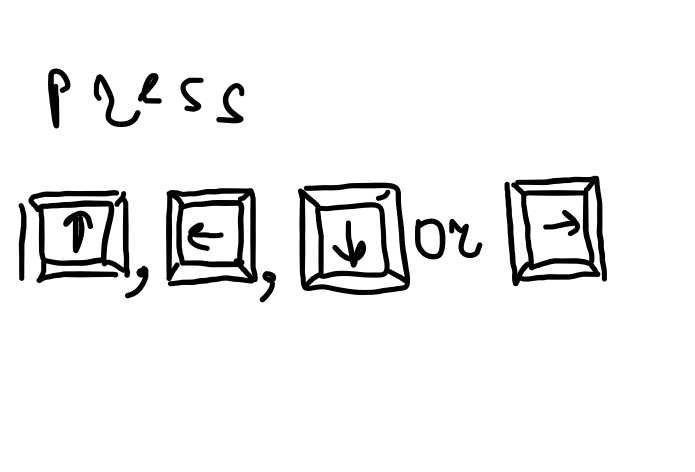 press
↑, ←, ↓ or →